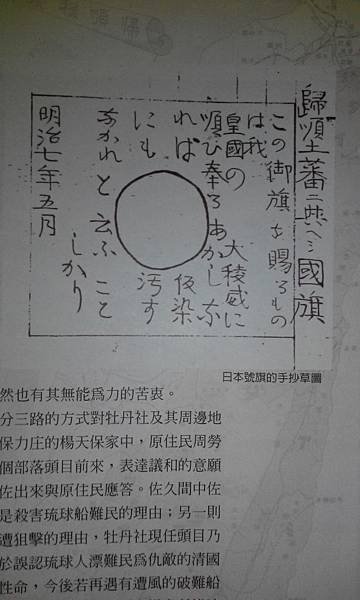 歸順土蕃ニ與ヘシ國旗
この御旗を賜るもの
は我
皇國の 大稜威に
順ひ奉るあかしな
れば 仮染
にも 汚す
なかれと云ふこと
しかり
明治七年五月
日本號旗的手抄草圖
然也有其無能為力的苦衷。
分三路的方式對牡丹社及其周邊地
保力庄的楊天保家中，原住民周勞
個部落頭目前來，表達議和的意願
佐出來與原住民應答。佐久間中佐
是殺害琉球船難民的理由；另一則
遭狙擊的理由，牡丹社現任頭目乃
於誤認琉球人漂難民為仇敵的清國
性命，今後若再遇有遭風的破難船